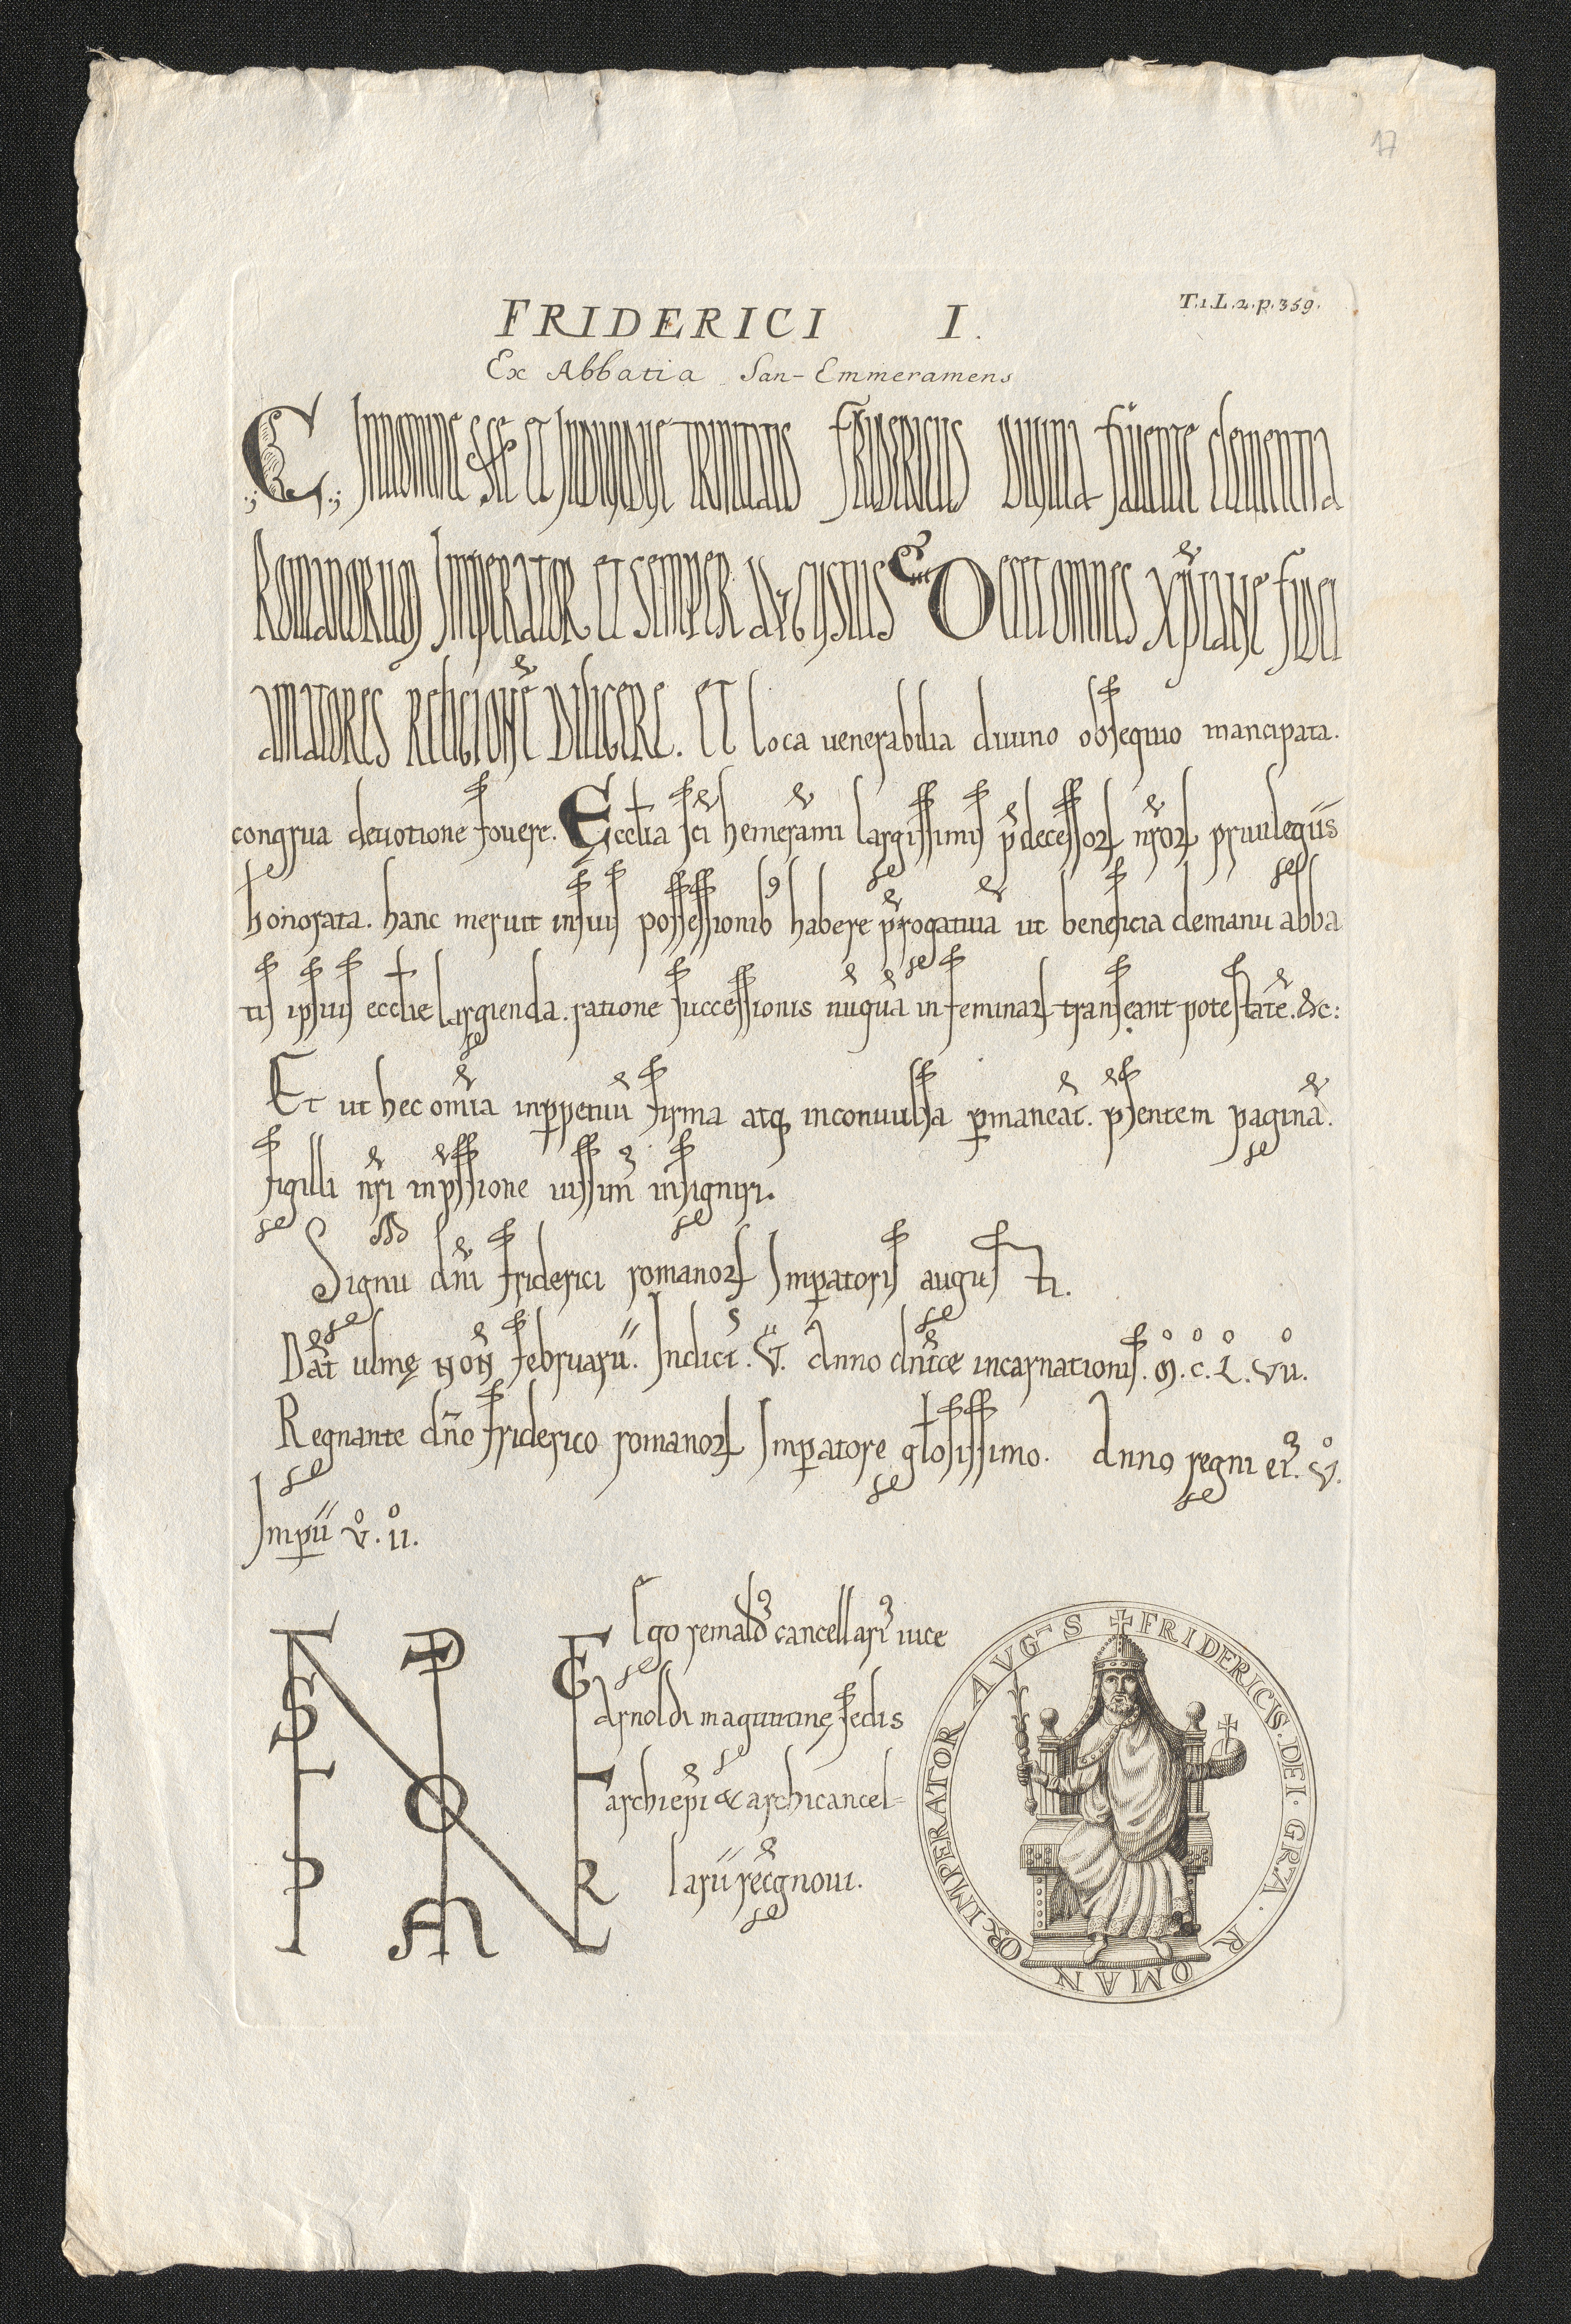 17
T.1.L.2.p.359.
FRIDERICI I.
Ex Abbatia San-Emmeramens
C. In nomine scē et indiuidue trinitatis Fridericus diuina fauente clementia
Romanorum Imperator et semper augustus Decet omnes xp̄iane fidei
amatores religionē diligere. Et loca uenerabilia diuino obsequio mancipata.
congrua deuotione fouere. Ecclīa sc̄i hemerammi largissimis p̄decessorꝝ nr̄orꝝ priuilegiis
honorata. hanc meruit insuis possessionibꝰ habere p̄rogatiuā ut beneficia demanu abba
tis ipsius ecclīe largienda. ratione successionis nūquā infeminarꝝ transeant potestatē. &c:
Et ut hec om̄ia inꝑpetuū firma atqꝫ inconuulsa ꝑmaneāt. p̄sentem paginā.
sigilli nr̄i inp̄ssione iussimꝰ insigniri.
Signū dn̄i friderici romanorꝝ Imꝑatoris augus ti.
Dat̄ ulmę Noñ februarii. Indict̄. V. Anno dn̄ice incarnationis. M. c. L. vii.
Regnante dn̄o friderico romanorꝝ Imꝑatore gl̄osissimo. Anno regni eiꝰ. v.
Imꝑii v. ii.
Ego remaldꝰ cancellariꝰ uice
Arnoldi maguntinę sedis
archiep̄i & archicancel=
larii rec̄gnoui.
✝ FRIDERICUS. DEI. GRA. ROMANOR. IMPERATOR AVGS